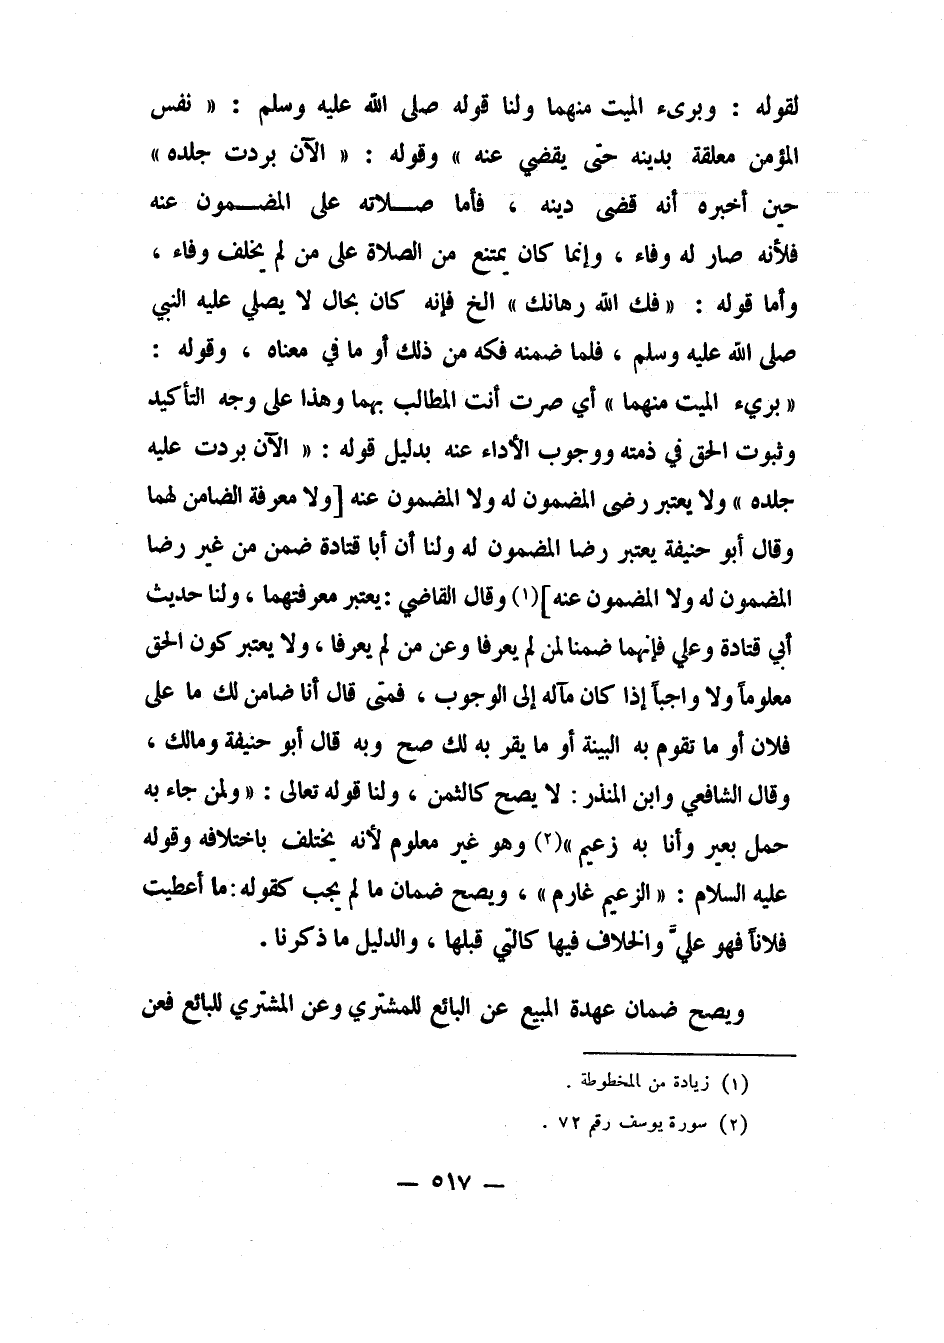 لقوله : وبرىء الميت منهما ولنا قوله صلى الله عليه وسلم : « نفس
المؤمن معلقة بدينه حتى يقضي عنه » وقوله : « الآن بردت جلده »
حين أخبره أنه قضى دينه ، فأما صـلاته على المضـمون عنه
فلأنه صار له وفاء ، وإنما كان يمتنع من الصلاة على من لم يخلف وفاء ،
وأما قوله : « فك الله رهانك » الخ فإنه كان بحال لا يصلي عليه النبي
صلى الله عليه وسلم ، فلما ضمنه فكه من ذلك أو ما في معناه ، وقوله :
« بريء الميت منهما » أي صرت أنت المطالب بهما وهذا على وجه التأكيد
وثبوت الحق في ذمته ووجوب الأداء عنه بدليل قوله : « الآن بردت عليه
جلده » ولا يعتبر رضى المضمون له ولا المضمون عنه [ ولا معرفة الضامن لهما
وقال أبو حنيفة يعتبر رضا المضمون له ولنا أن أبا قتادة ضمن من غير رضا
المضمون له ولا المضمون عنه ](١) وقال القاضي : يعتبر معرفتهما ، ولنا حديث
أبي قتادة وعلي فإنهما ضمنا لمن لم يعرفا وعن من لم يعرفا ، ولا يعتبر كون الحق
معلوماً ولا واجباً إذا كان مآله إلى الوجوب ، فمتى قال أنا ضامن لك ما على
فلان أو ما تقوم به البينة أو ما يقر به لك صح وبه قال أبو حنيفة ومالك ،
وقال الشافعي وابن المنذر : لا يصح كالثمن ، ولنا قوله تعالى : « ولمن جاء به
حمل بعير وأنا به زعيم »(٢) وهو غير معلوم لأنه يختلف باختلافه وقوله
عليه السلام : « الزعيم غارم » ، ويصح ضمان ما لم يجب كقوله : ما أعطيت
فلاناً فهو عليَّ والخلاف فيها كالتي قبلها ، والدليل ما ذكرنا .
ويصح ضمان عهدة المبيع عن البائع للمشتري وعن المشتري للبائع فعن
(١) زيادة من المخطوطة .
(٢) سورة يوسف رقم ٧٢ .
— ٥١٧ —